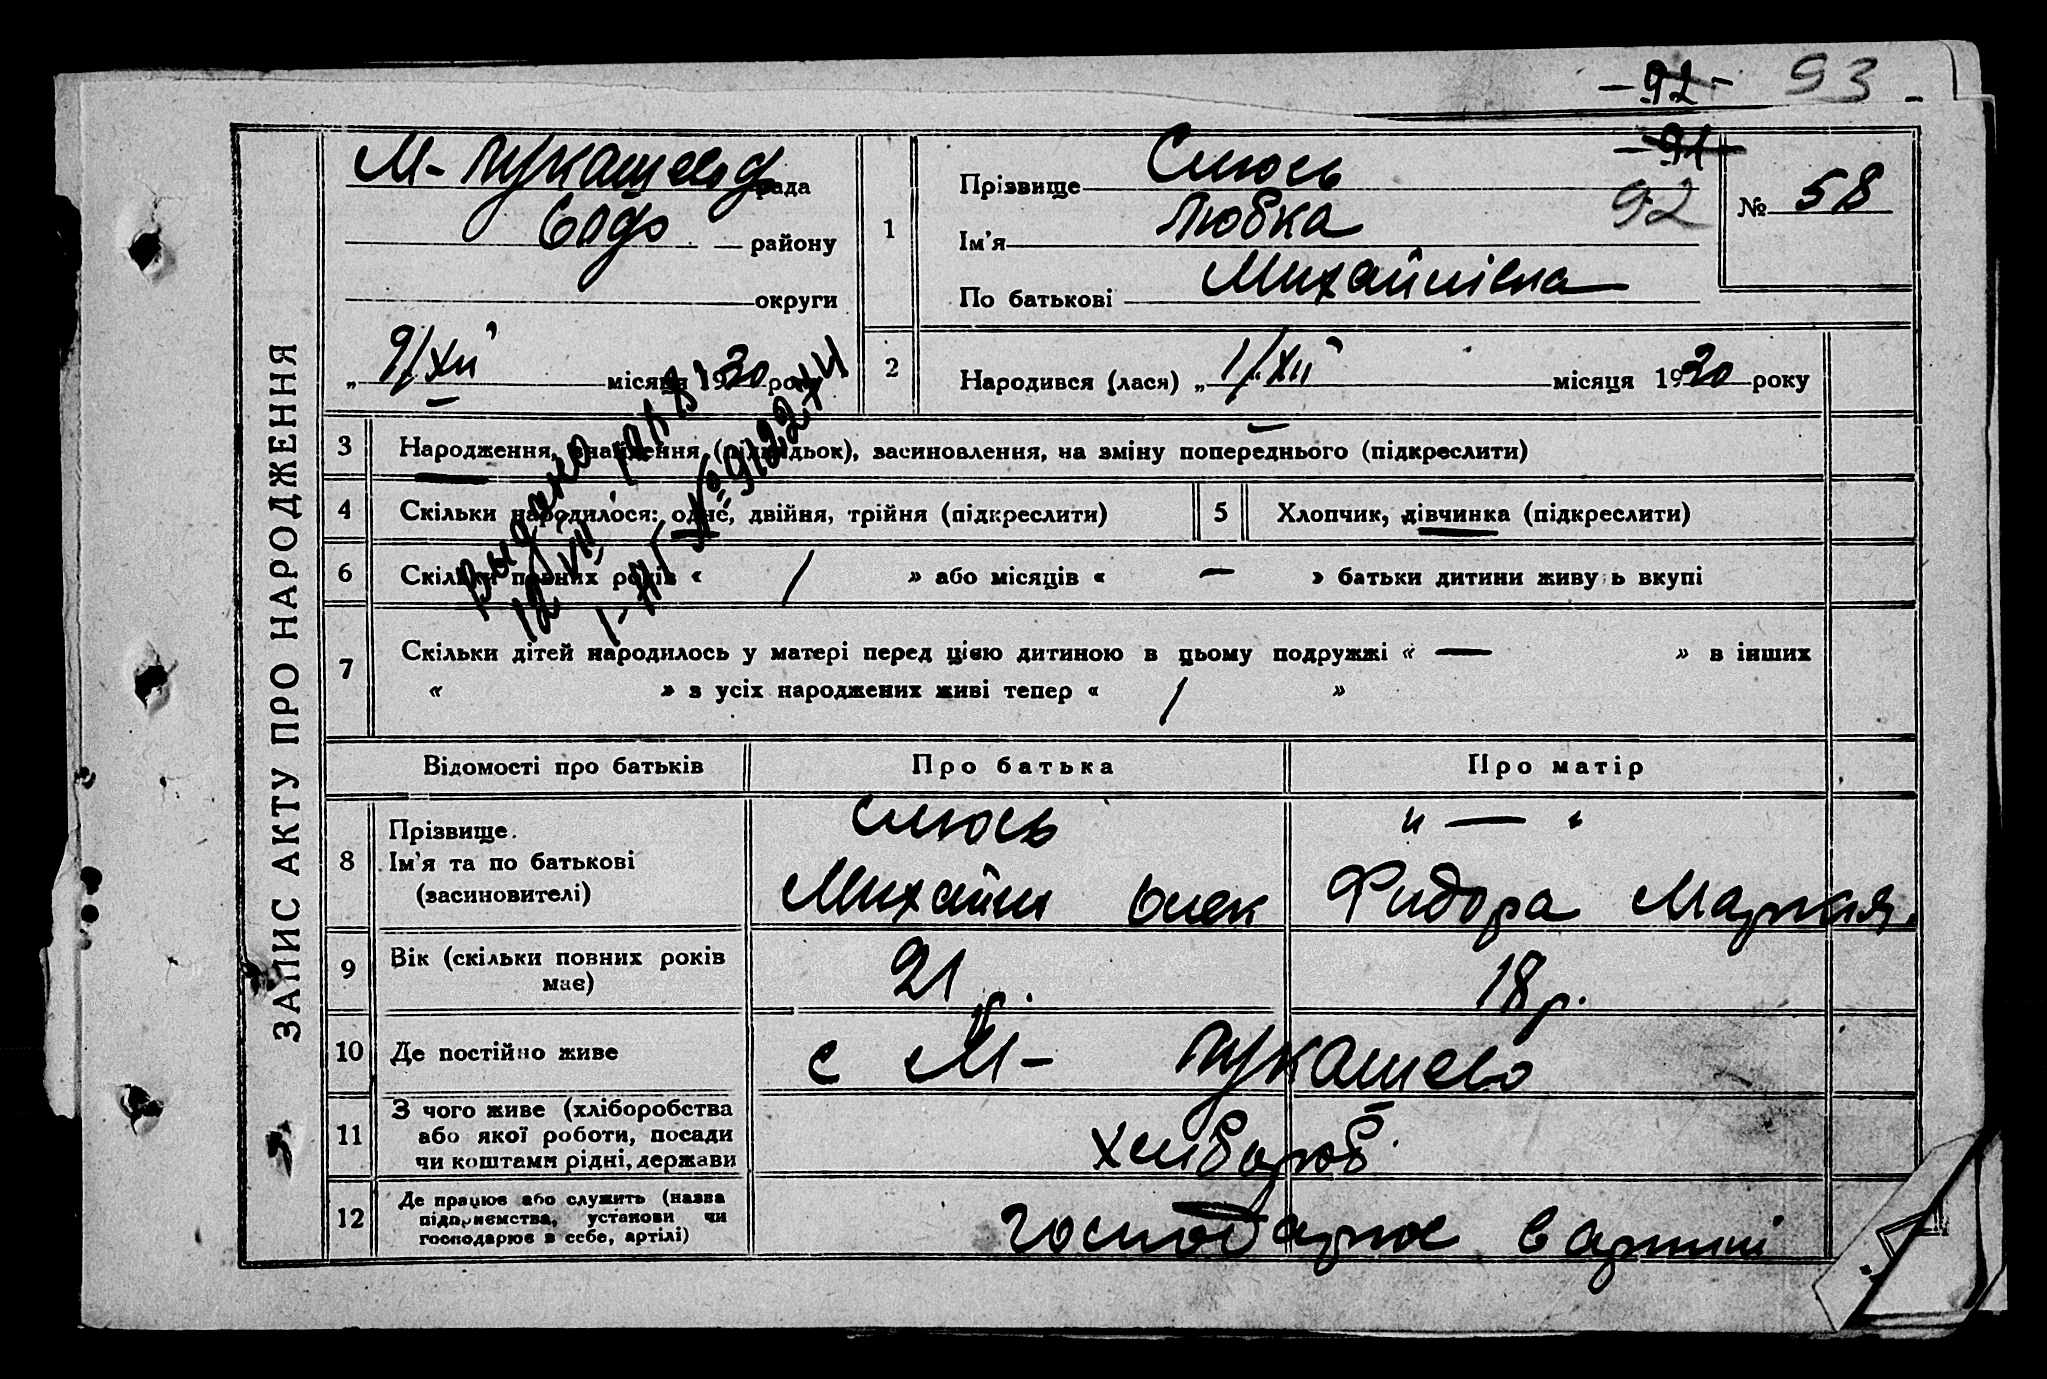 -92- 93
-91-
92
М- Лукашевод рада
района
округи
„9/XII" місяця 1930 року
1
Прізвище Слюсь
Ім'я Любка
По батькові Михайлівна
№ 58
2
Народився (лася) „1/XII" місяця 1930 року
ЗАПИС АКТУ ПРО НАРОДЖЕННЯ
3 Народження, знайдення (підкидьок), засиновлення, на зміну попереднього (підкреслити)
4 Скільки народилося: одне, двійня, трійня (підкреслити)
5 Хлопчик, дівчинка (підкреслити)
6 Скільки повних років « 1 » або місяців « — » батьки дитини живуть вкупі
7 Скільки дітей народилось у матері перед цією дитиною в цьому подружжі « — » в інших
« » з усіх народжених живі тепер « 1 »
Выдано
12 VII
Відомості про батьків Про батька Про матір
8 Прізвище.
Ім'я та по батькові
(засиновителі)
Слюсь
Михайло Олек
" — "
Фидора Маркая.
9 Вік (скільки повних років
має)
21 р. 18 р.
10 Де постійно живе с М- Лукашево
11 З чого живе (хліборобства
або якої роботи, посади
чи коштами рідні, держави
хлибороб
12 Де працює або служить (назва
підприємства, установи чи
господарює в себе, артілі)
господарює в артілі